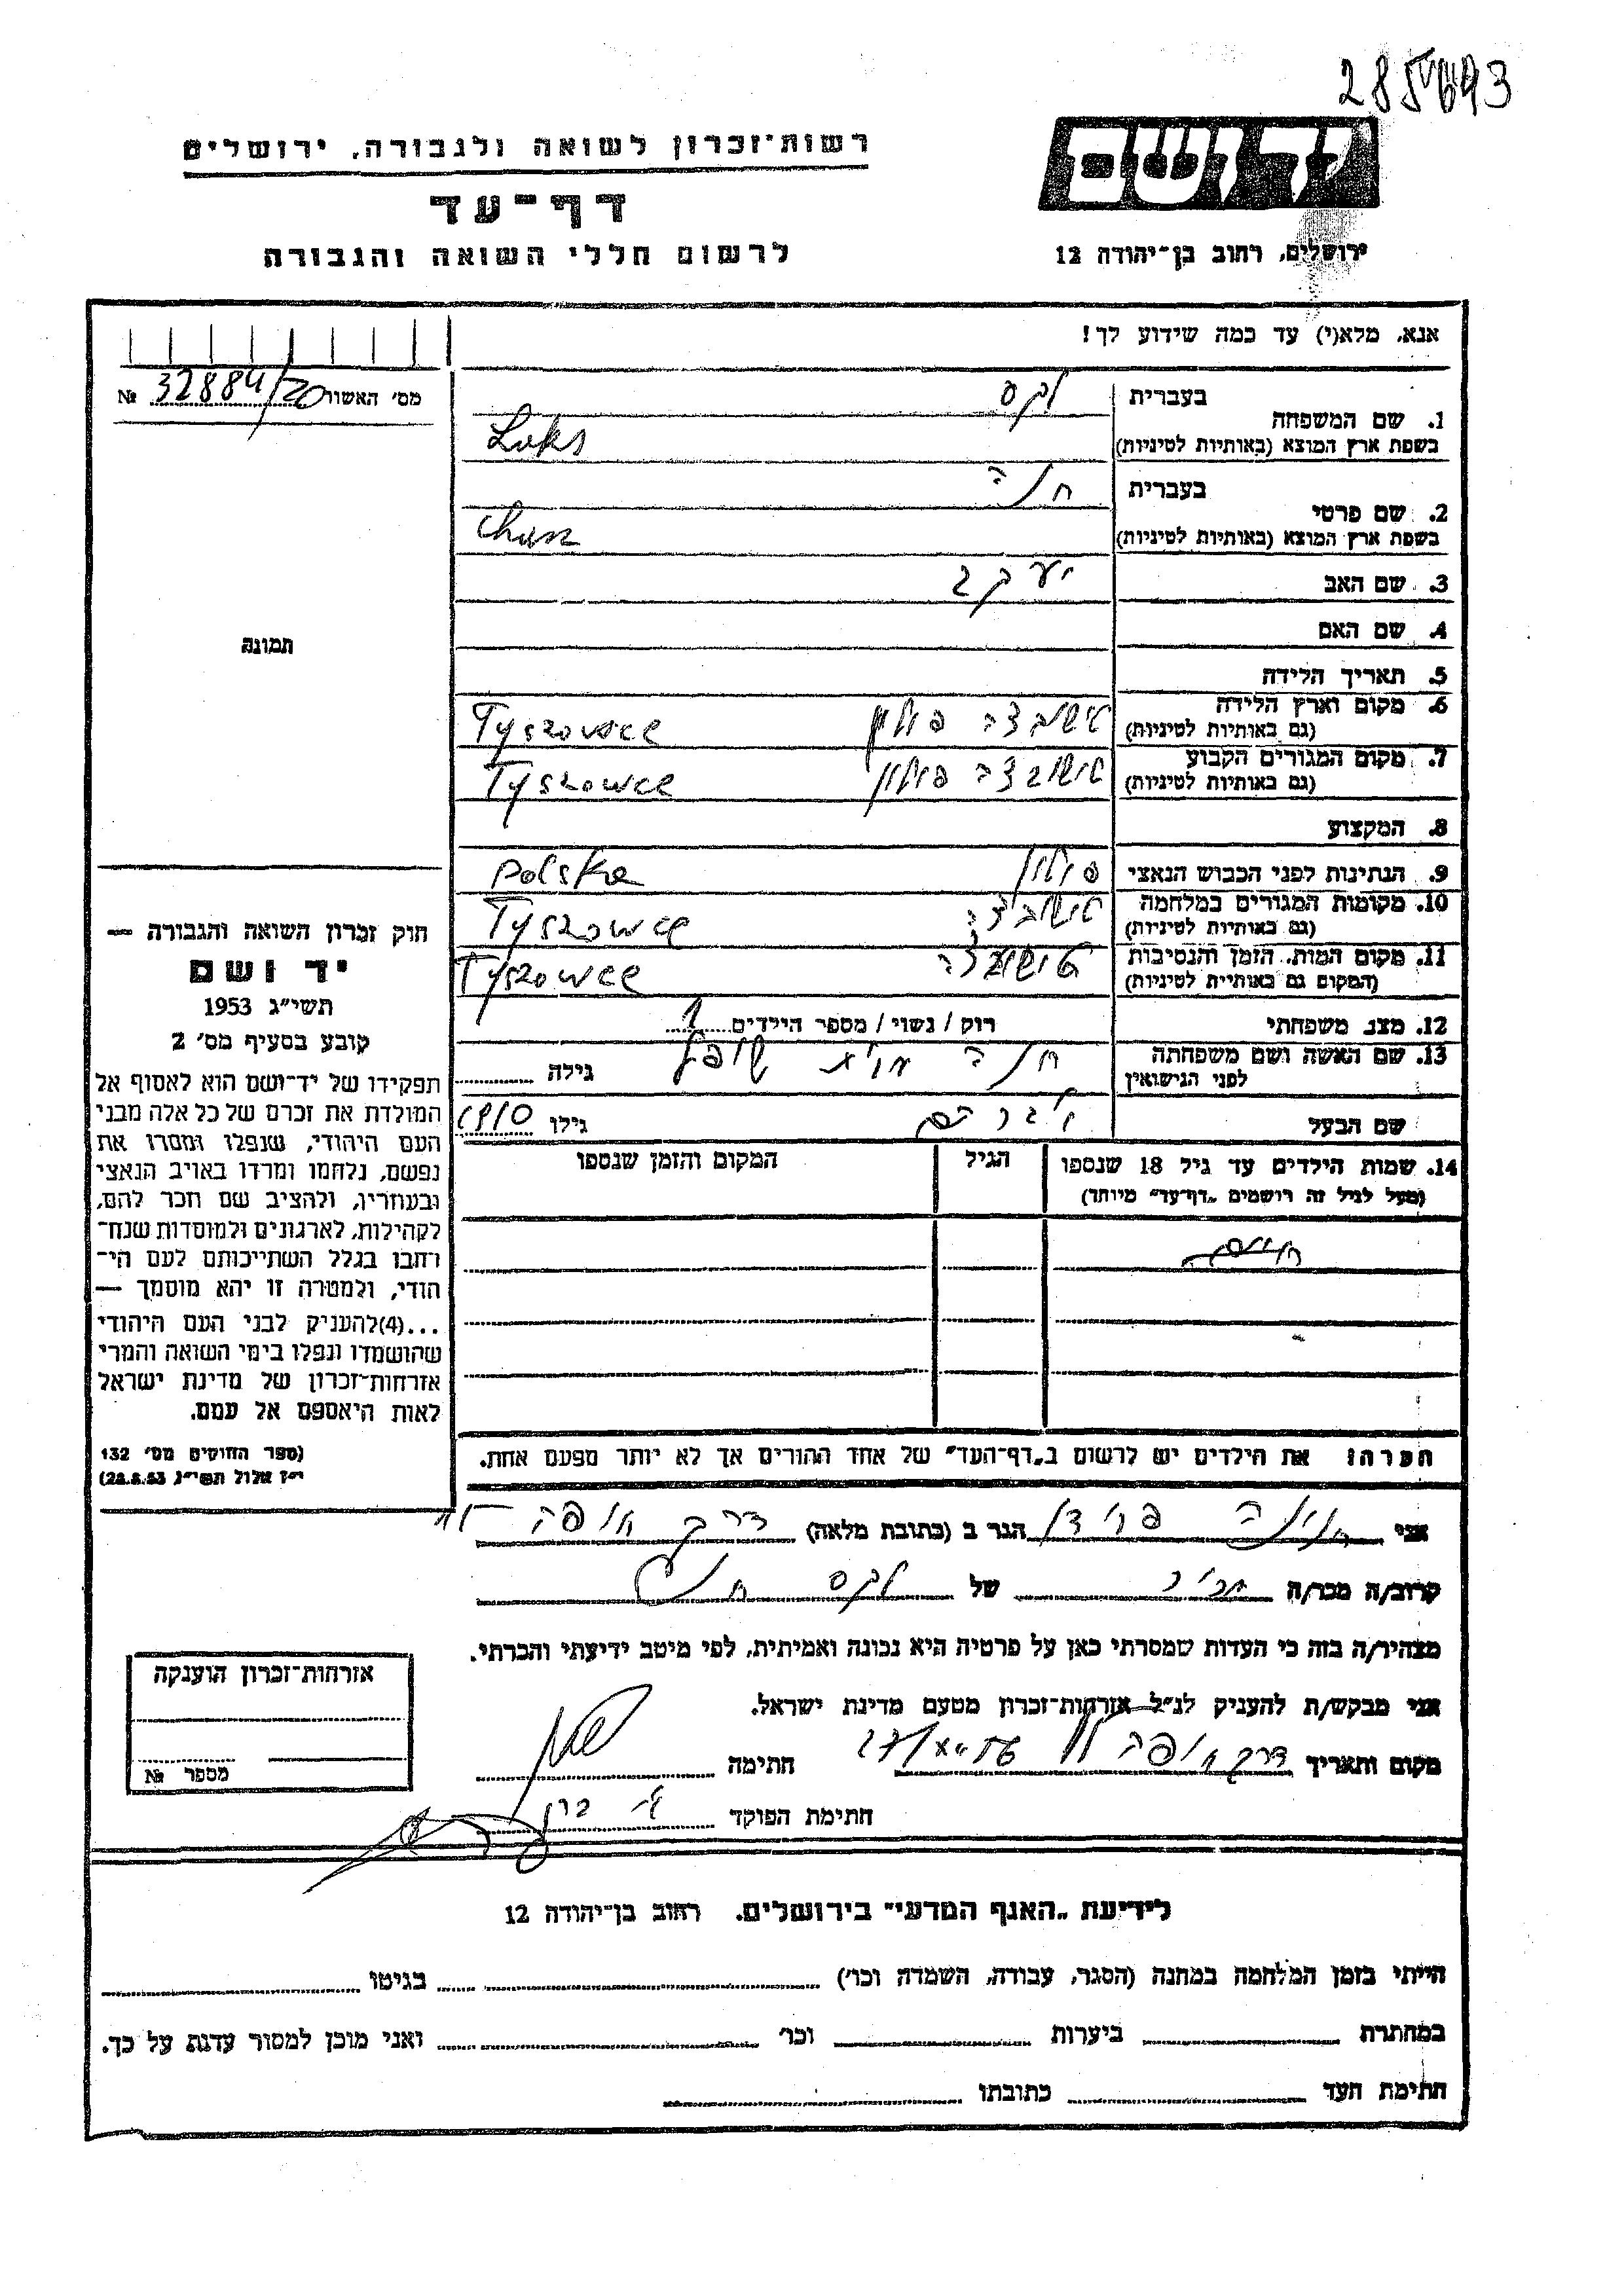 285693
רשות־זכרון לשואה ולגבורה, ירושלים
דף־עד
לרשום חללי השואה והגבורה
ידושם
ירושלים, רחוב בן־יהודה 12
אנא, מלא(י) עד כמה שידוע לך!
מס' האשור 32884/20 №
בעברית לקס
1. שם המשפחה
בשפת ארץ המוצא (באותיות לטיניות) Luks
בעברית חנה
2. שם פרטי
בשפת ארץ המוצא (באותיות לטיניות) Chana
3. שם האב יעקב
4. שם האם
5. תאריך הלידה
6. מקום וארץ הלידה
(גם באותיות לטיניות) טישובצה פולין Tyszowce
7. מקום המגורים הקבוע
(גם באותיות לטיניות) טישובצה פולין Tyszowce
8. המקצוע
9. הנתינות לפני הכבוש הנאצי פולין Polska
10. מקומות המגורים במלחמה
(גם באותיות לטיניות) טישובצה Tyszowce
11. מקום המות, הזמן והנסיבות
(המקום גם באותיית לטיניות) טישובצה Tyszowce
12. מצב משפחתי רוק / נשוי / מספר הילדים 1
13. שם האשה ושם משפחתה
לפני הנישואין חנה מבית גילה
שם הבעל גילו 1910
14. שמות הילדים עד גיל 18 שנספו הגיל המקום והזמן שנספו
(מעל לגיל זה רושמים „דף־עד" מיוחד)
הערה: את הילדים יש לרשום ב„דף־העד" של אחד ההורים אך לא יותר מפעם אחת.
תמונה
חוק זכרון השואה והגבורה —
יד ושם
תשי"ג 1953
קובע בסעיף מס' 2
תפקידו של יד־ושם הוא לאסוף אל
המולדת את זכרם של כל אלה מבני
העם היהודי, שנפלו ומסרו את
נפשם, נלחמו ומרדו באויב הנאצי
ובעוזריו, ולהציב שם וזכר להם,
לקהילות, לארגונים ולמוסדות שנח־
רבו בגלל השתייכותם לעם הי־
הודי, ולמטרה זו יהא מוסמך —
...(4)להעניק לבני העם היהודי
שהושמדו ונפלו בימי השואה והמרי
אזרחות־זכרון של מדינת ישראל
לאות היאספם אל עמם.
(ספר החוקים מס' 132
י"ז אלול תשי"ג, 28.8.53)
אני הגר ב (כתובת מלאה) דרך חיפה
קרוב/ה מכר/ה חבר של לקס חנה
מצהיר/ה בזה כי העדות שמסרתי כאן על פרטיה היא נכונה ואמיתית, לפי מיטב ידיעתי והכרתי.
אני מבקש/ת להעניק לנ"ל אזרחות־זכרון מטעם מדינת ישראל.
מקום ותאריך דרך חיפה חתימה
חתימת הפוקד
אזרחות־זכרון הוענקה
מספר №
לידיעת „האגף המדעי" בירושלים. רחוב בן־יהודה 12
הייתי בזמן המלחמה במחנה (הסגר, עבודה, השמדה וכו') בגיטו
במחתרת ביערות וכו' ואני מוכן למסור עדות על כך.
חתימת העד כתובתו